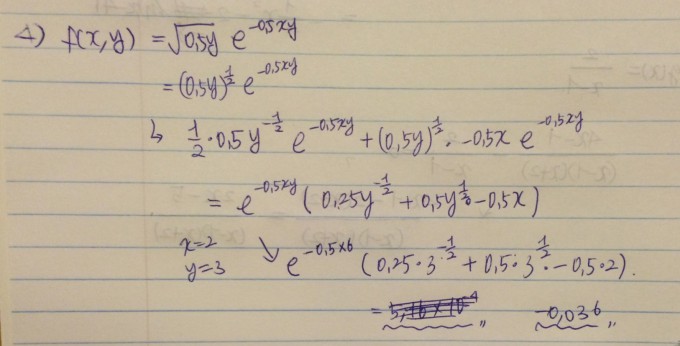 4) f(x,y) = √0,5y e^-0,5xy
= (0,5y)^1/2 e^-0,5xy
↳ 1/2 · 0,5y^-1/2 e^-0,5xy + (0,5y)^1/2 · -0,5x e^-0,5xy
= e^-0,5xy (0,25y^-1/2 + 0,5y^1/2 · -0,5x)
x=2
y=3 ↘ e^-0,5×6 (0,25·3^-1/2 + 0,5·3^1/2 · -0,5·2).
= -0,036